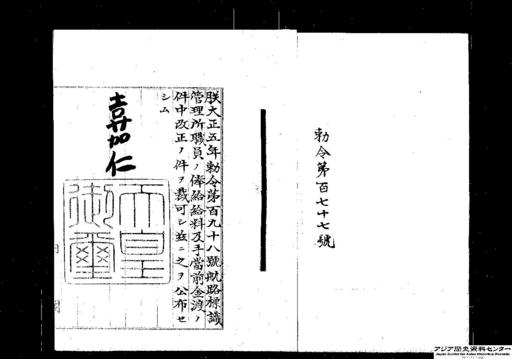 勅令第百七十七號
朕大正五年勅令第百九十八號航路標識
管理所職員ノ俸給給料及手當前金渡ノ
件中改正ノ件ヲ裁可シ茲ニ之ヲ公布セ
シム
嘉仁
天皇
御璽
アジア歴史資料センター
Japan Center for Asian Historical Records